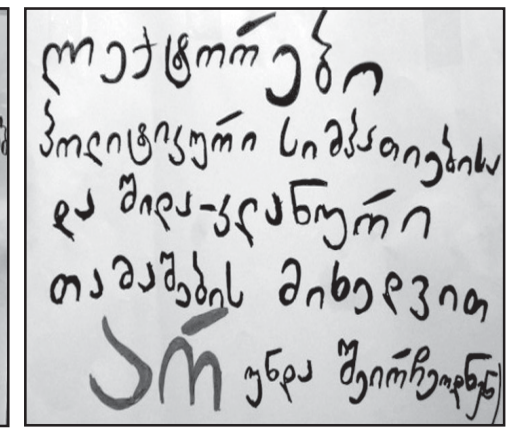 ლექტორები
პოლიტიკური სიმპათიებისა
და შიდა-კლანური
თამაშების მიხედვით
არ უნდა შეირჩეოდნენ